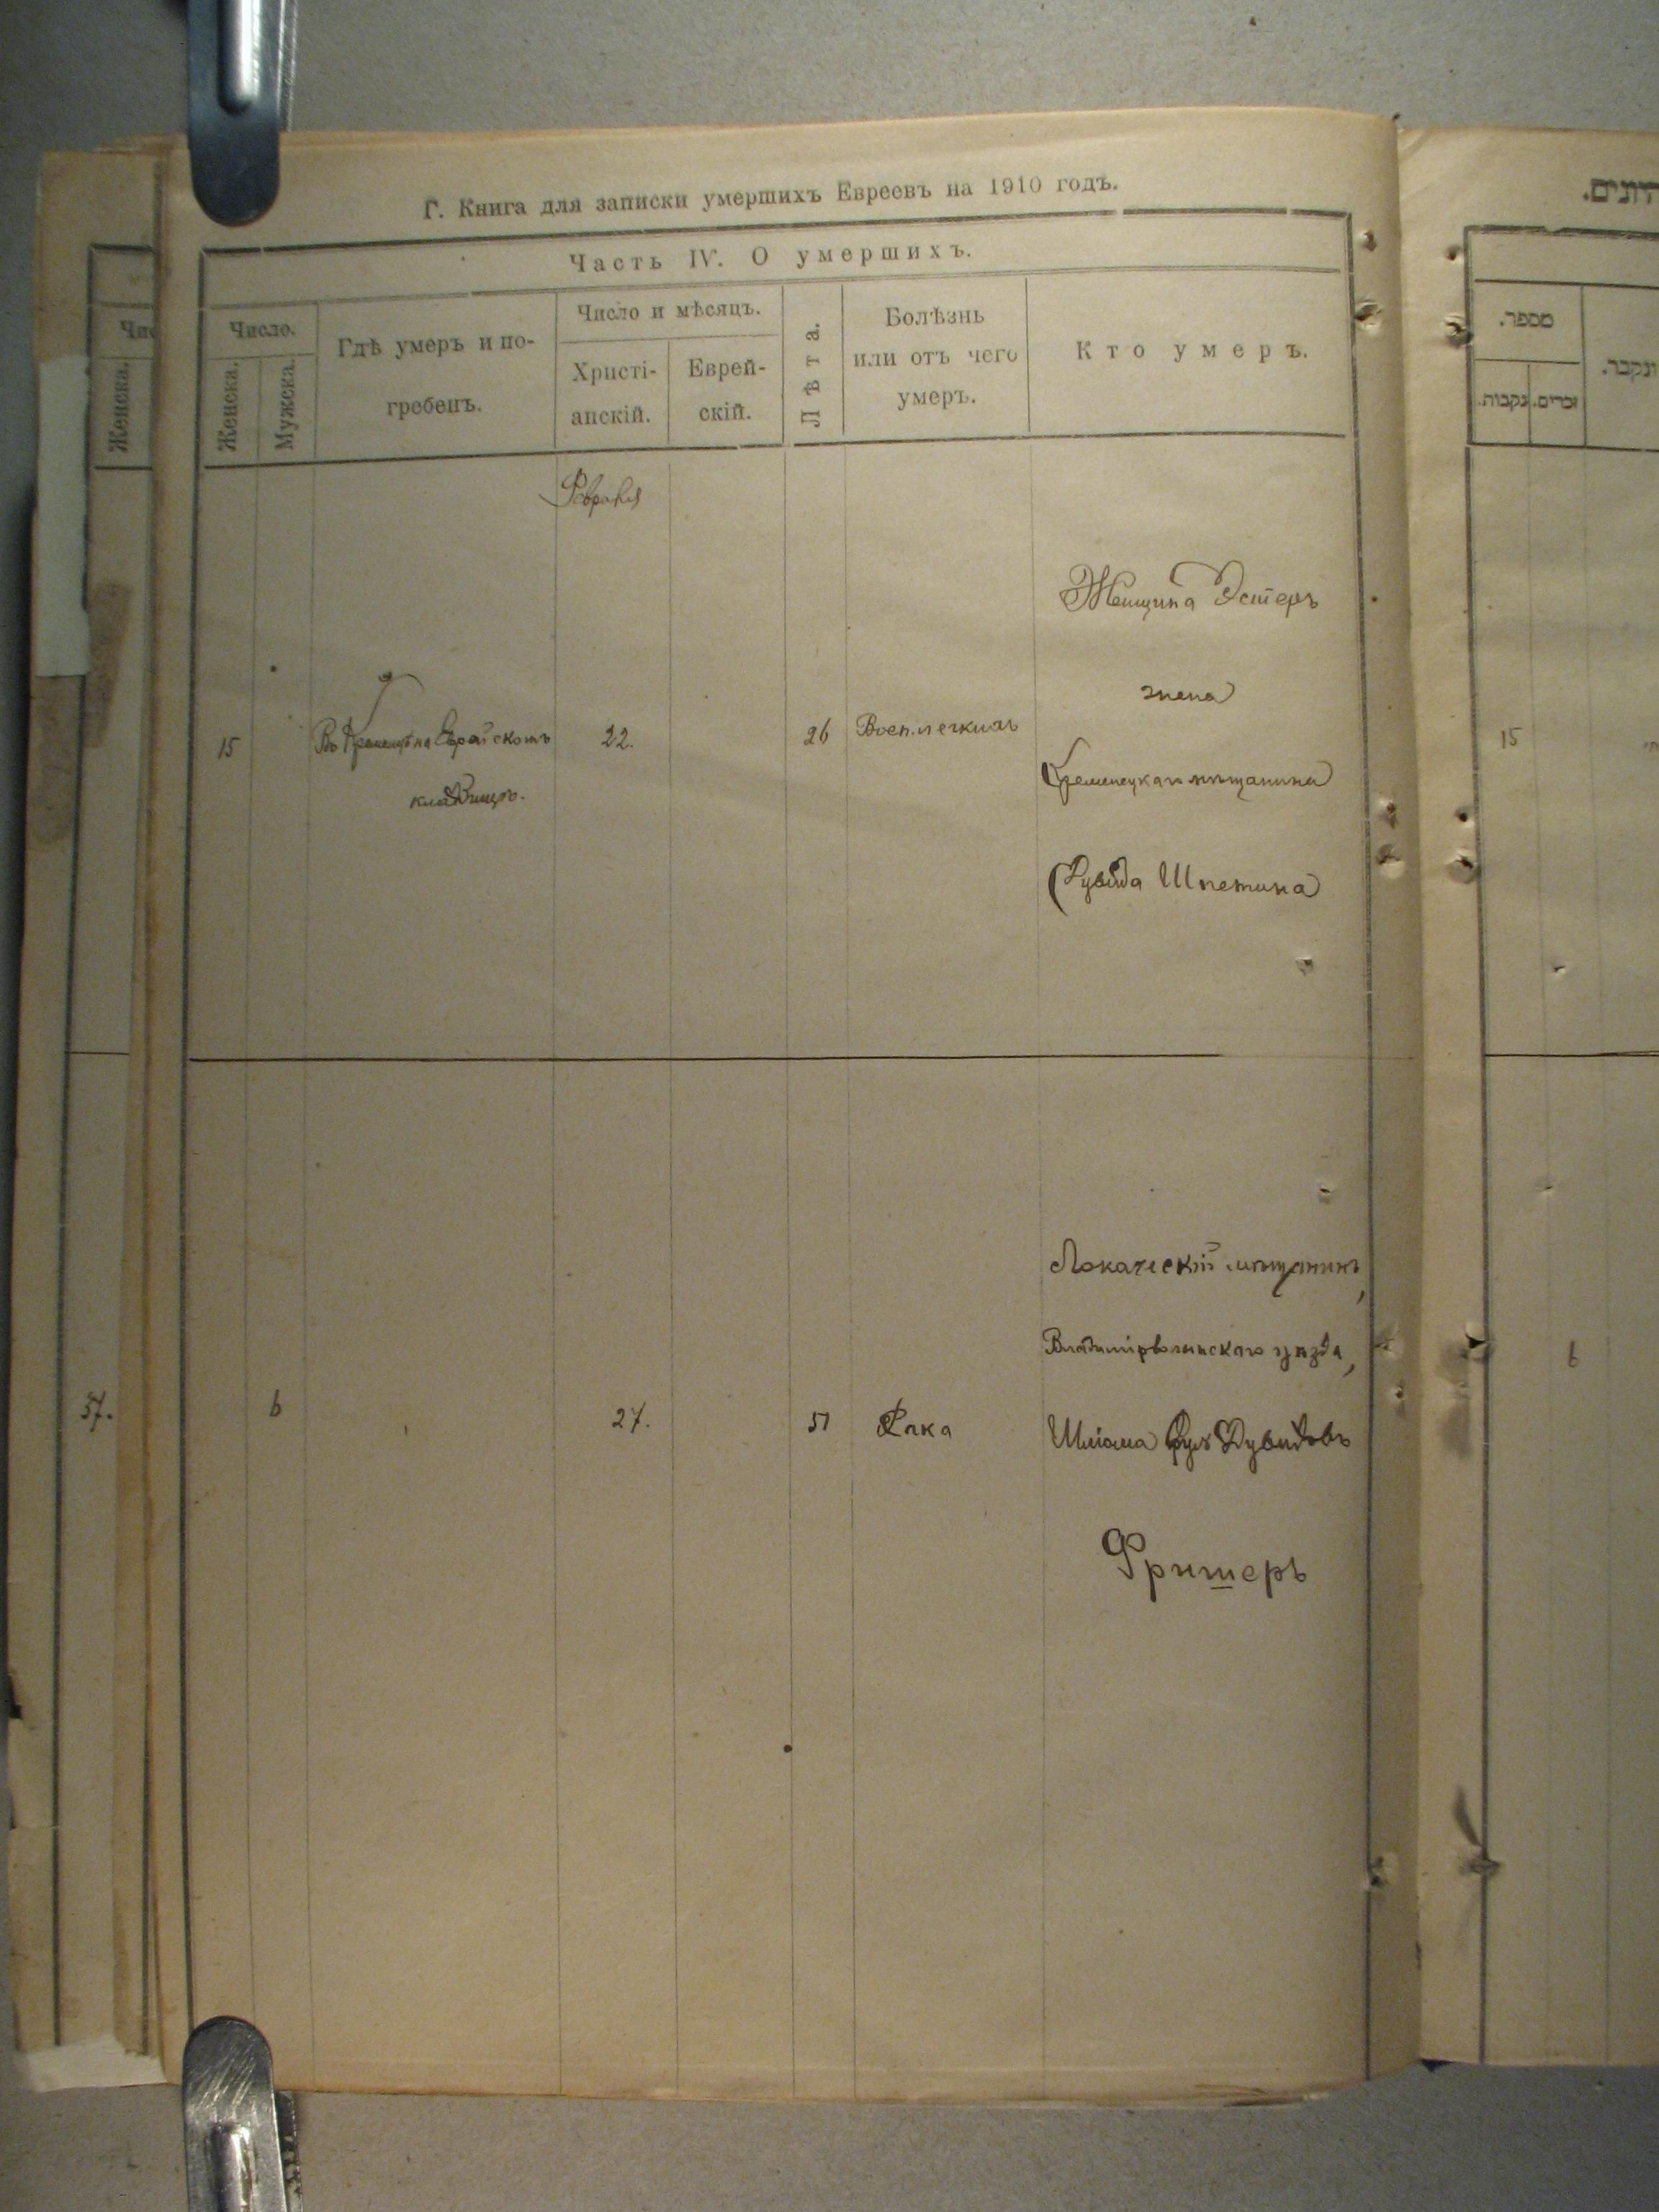 Г. Книга для записки умершихъ Евреевъ на 1910 годъ.
Часть IV. О умершихъ.
Число.
Женска.
Мужска.
Гдѣ умеръ и по-
гребенъ.
Число и мѣсяцъ.
Христі-
анскій.
Еврей-
скій.
Лѣта.
Болѣзнь
или отъ чего
умеръ.
Кто умеръ.
Февраля
15
Въ Кременцѣ на Еврейскомъ
кладбищѣ.
22.
26
Восп. легкихъ
Женщина Эстеръ
жена
Кременецкаго мѣщанина
Дувида Шпетина
6
27.
51
Рака
Локаческій мѣщанинъ,
Владимірволынскаго уѣзда,
Шліома Дувидовъ
Фришеръ
Женска.
37.
מספר.
נקבות.
זכרים.
ונקבר.
15
6